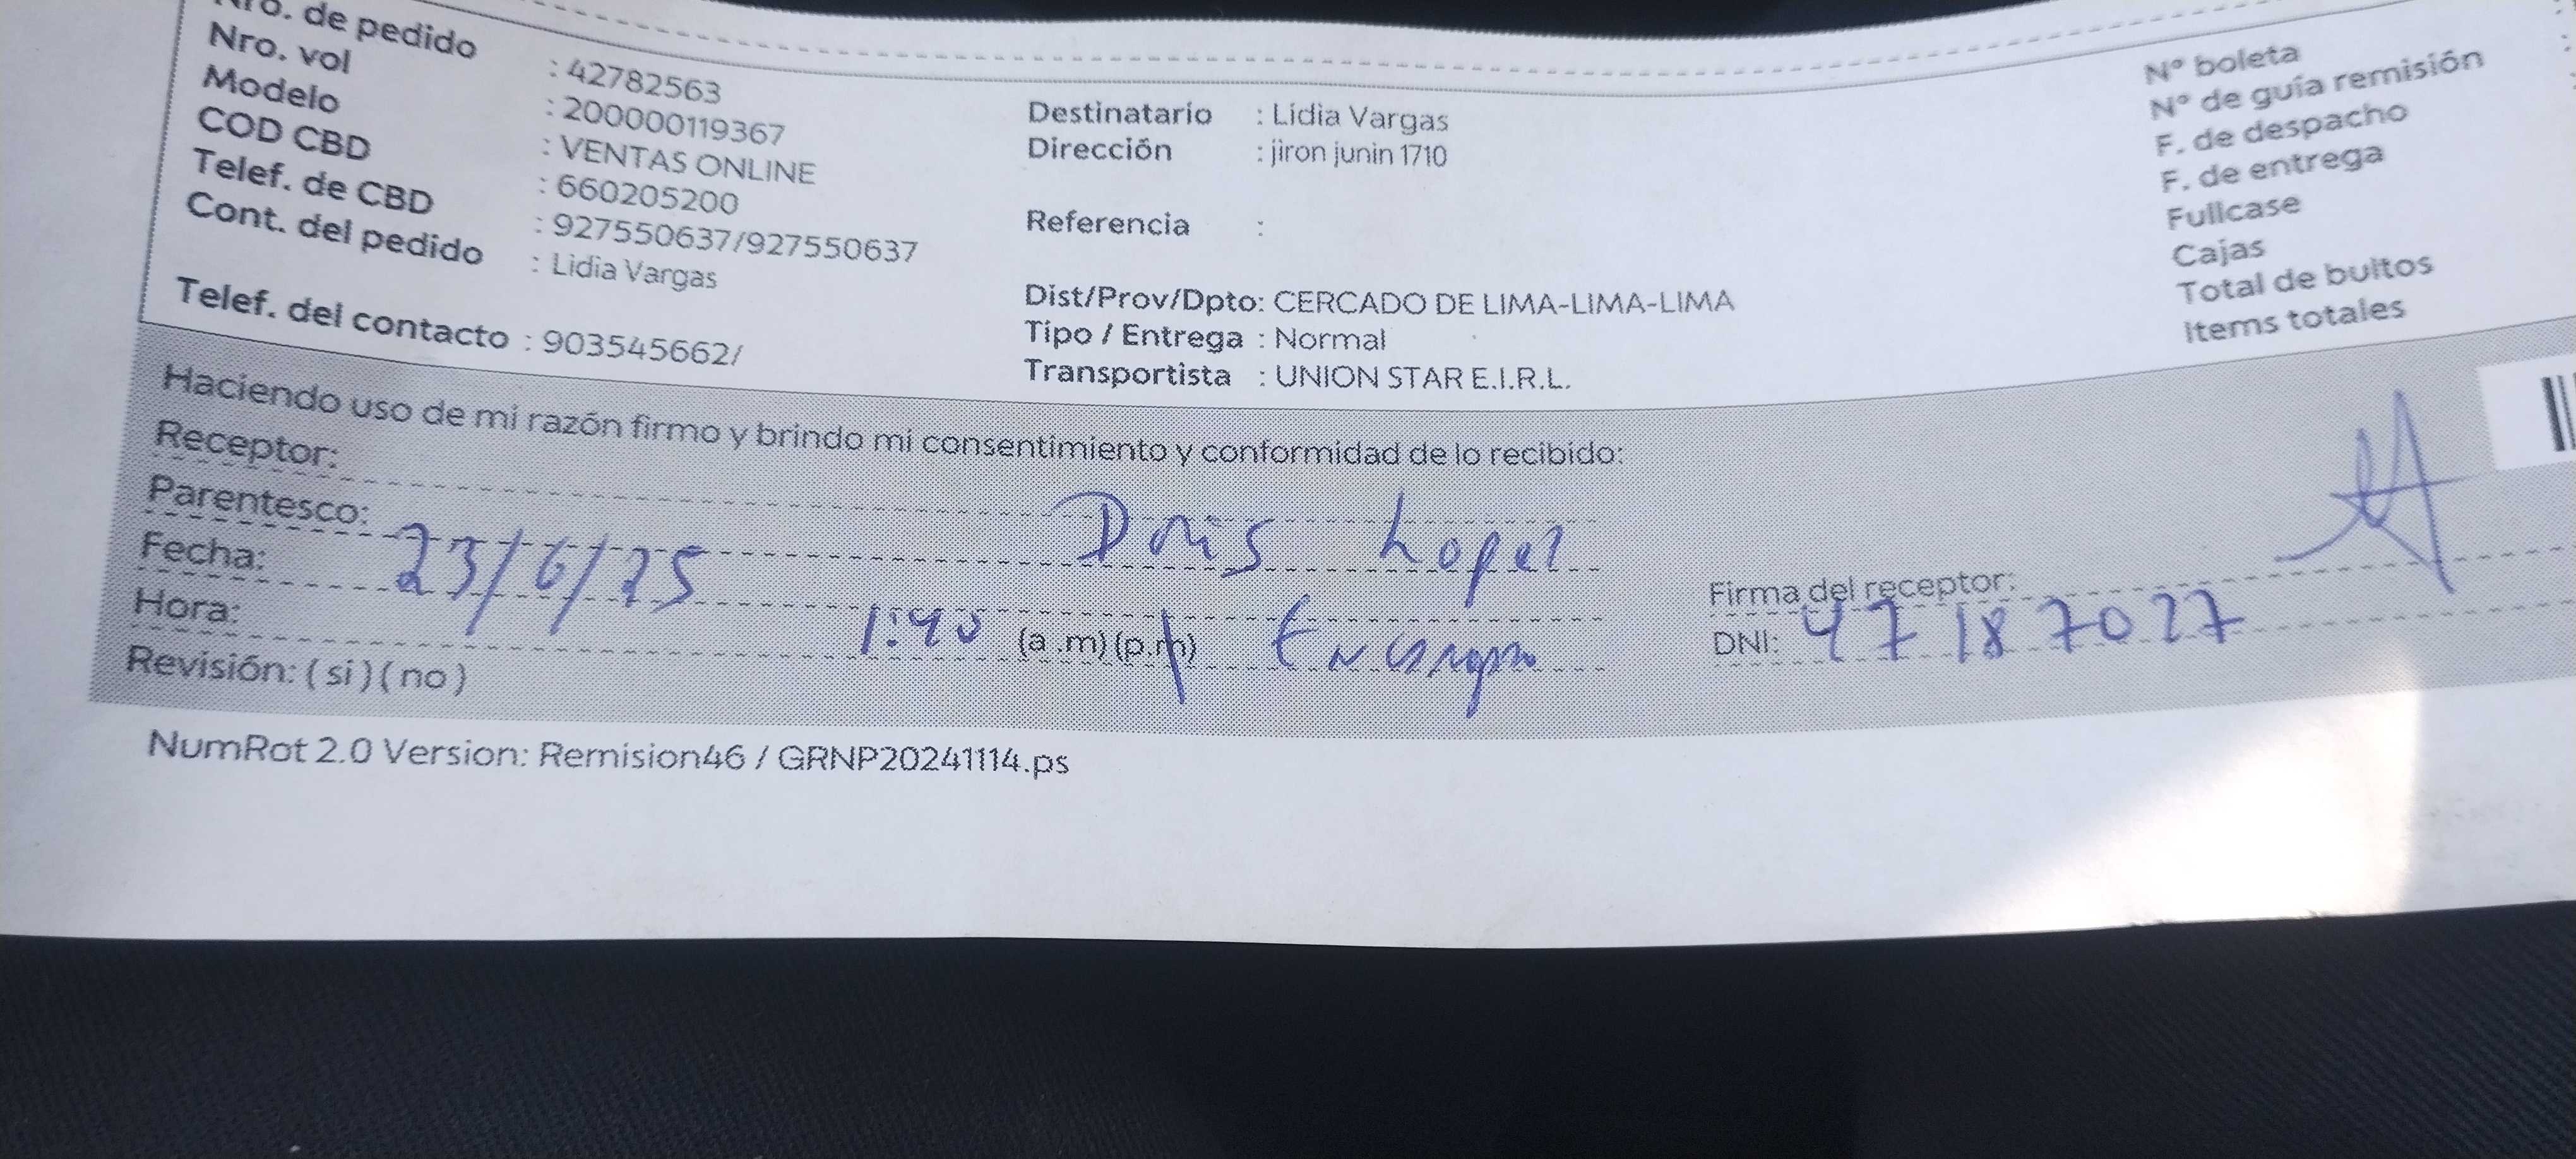 Nro. de pedido : 42782563
Nro. vol : 200000119367
Modelo : VENTAS ONLINE
COD CBD : 660205200
Telef. de CBD : 927550637/927550637
Cont. del pedido : Lidia Vargas
Telef. del contacto : 903545662/
Destinatario : Lidia Vargas
Dirección : jiron junin 1710
Referencia :
Dist/Prov/Dpto: CERCADO DE LIMA-LIMA-LIMA
Tipo / Entrega : Normal
Transportista : UNION STAR E.I.R.L.
N° boleta
N° de guía remisión
F. de despacho
F. de entrega
Fullcase
Cajas
Total de bultos
Items totales
Haciendo uso de mi razón firmo y brindo mi consentimiento y conformidad de lo recibido:
Receptor: Doris Lopez
Parentesco:
Fecha: 23/6/25
Hora: 1:40 (a.m)(p.m)
Revisión: ( si ) ( no )
Firma del receptor:
DNI: 47187027
NumRot 2.0 Version: Remision46 / GRNP20241114.ps